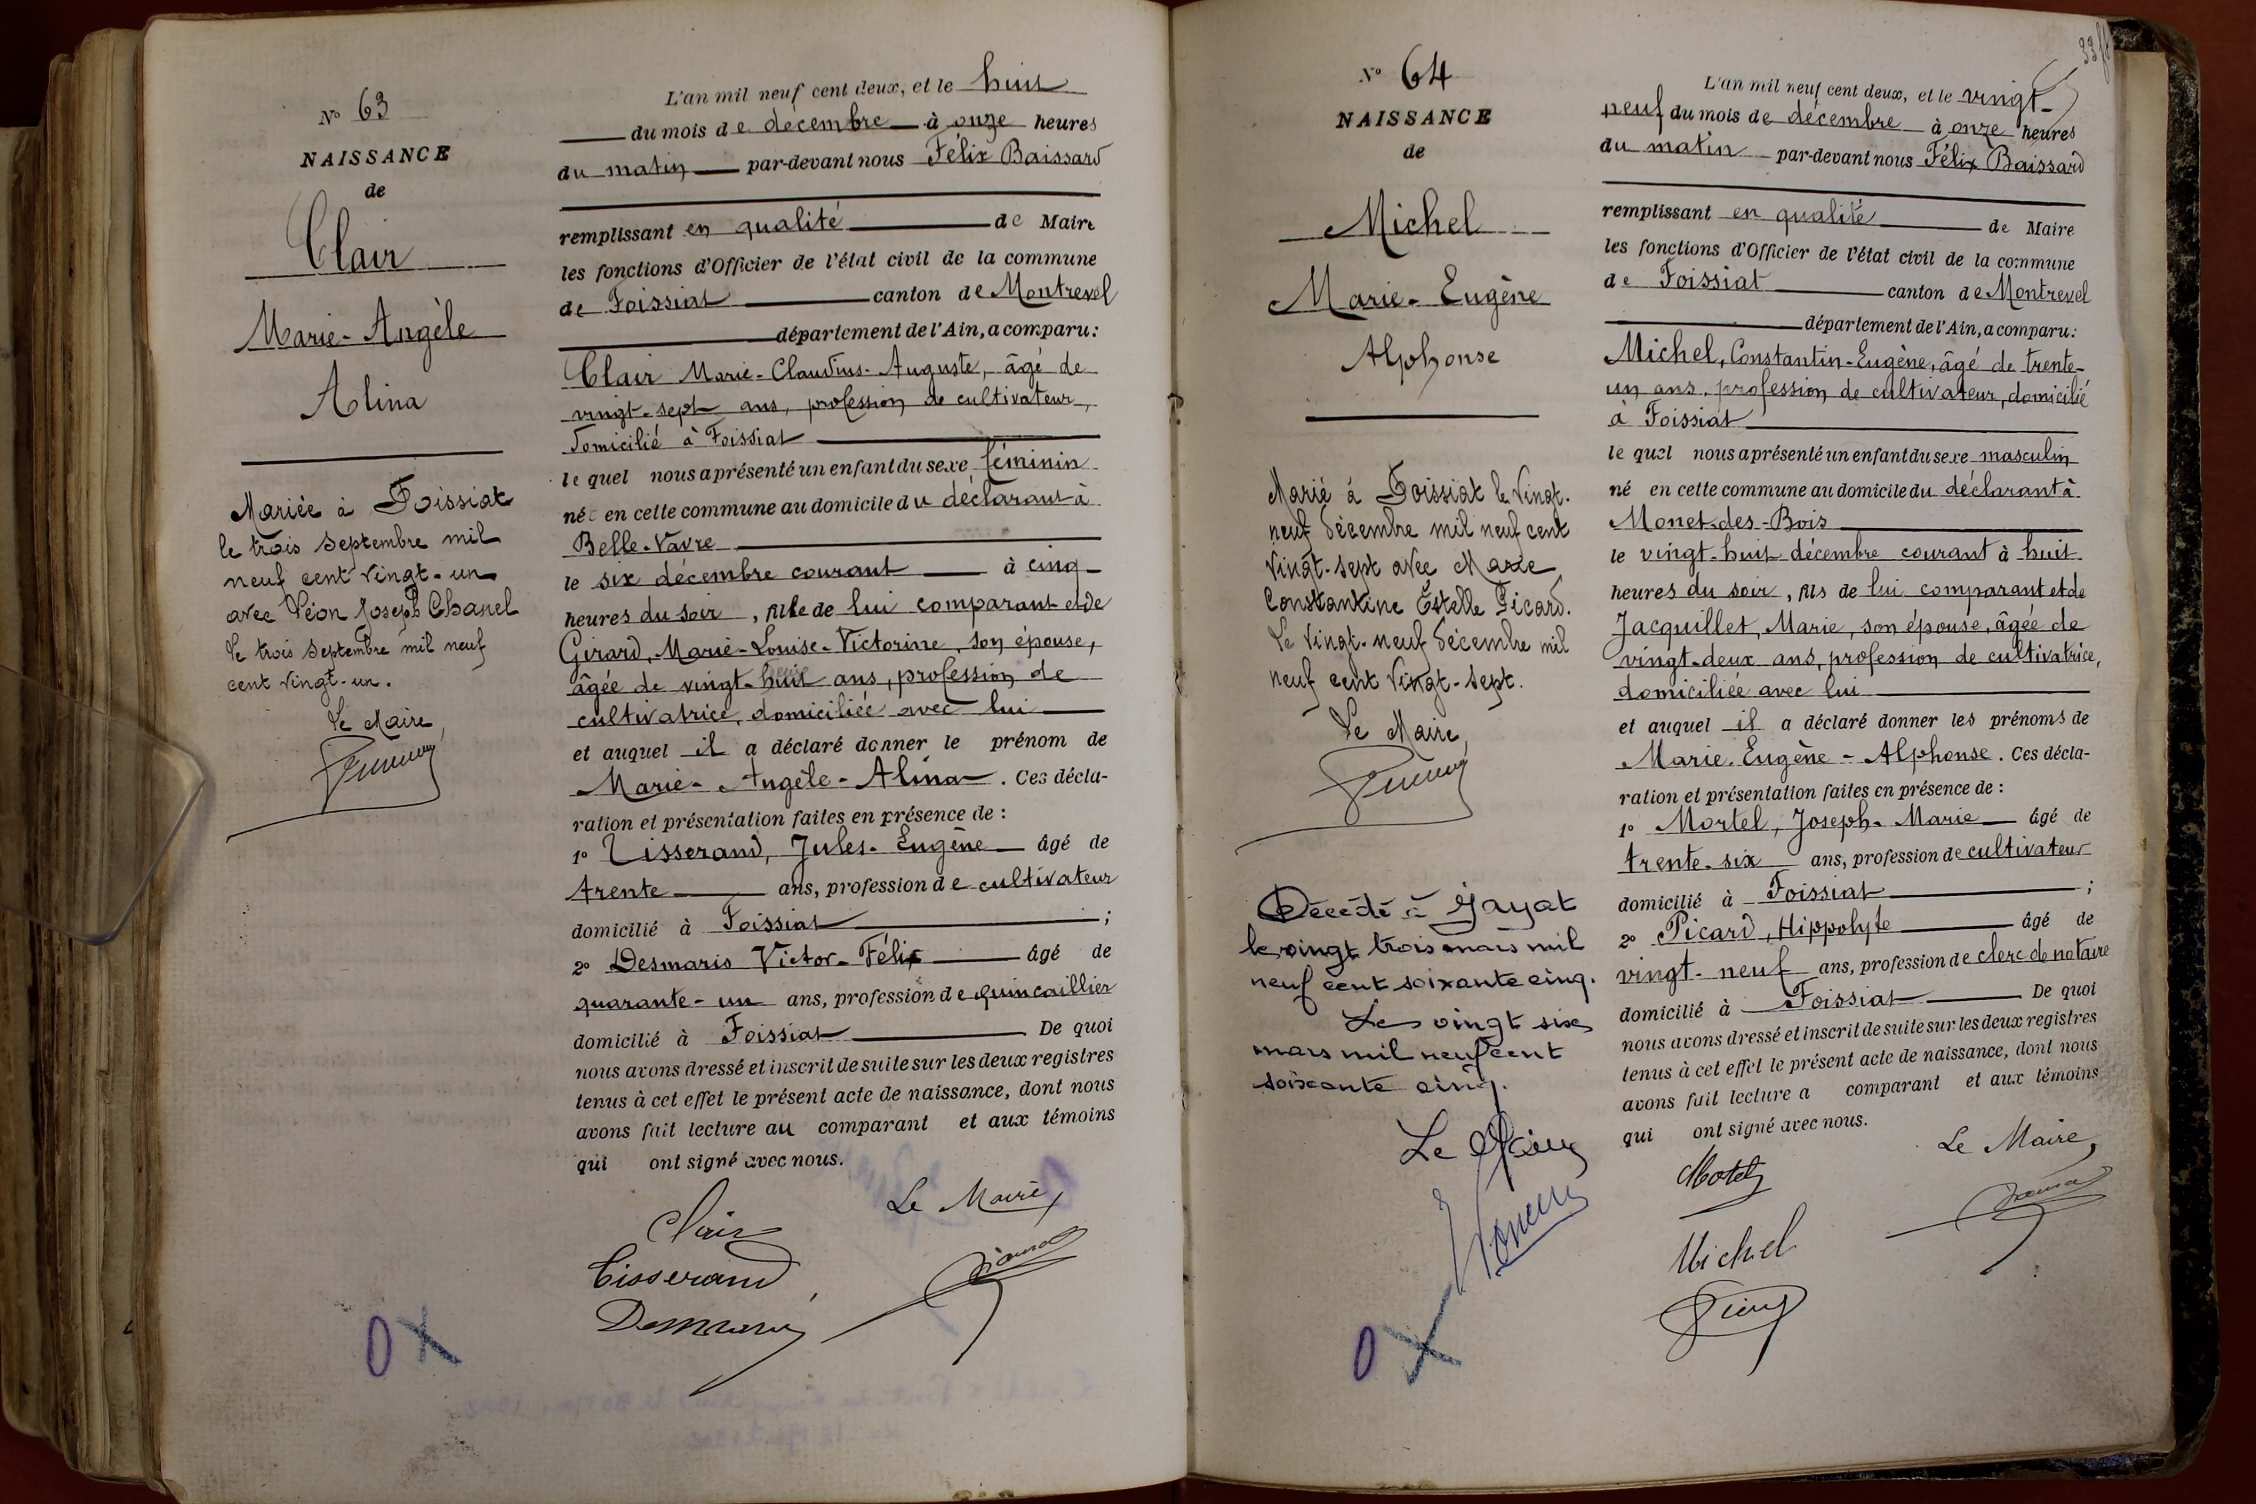 N° 63
NAISSANCE
de
Clair
Marie-Angèle
Alina
Mariée à Foissiat
le trois septembre mil
neuf cent vingt-un
avec Léon Joseph Chanel
Le trois septembre mil neuf
cent vingt-un.
Le Maire,
L'an mil neuf cent deux, et le huit
du mois de décembre à onze heures
du matin par-devant nous Félix Baissard
remplissant en qualité de Maire
les fonctions d'Officier de l'état civil de la commune
de Foissiat canton de Montrevel
département de l'Ain, a comparu:
Clair Marie-Claudius-Auguste, âgé de
vingt-sept ans, profession de cultivateur,
domicilié à Foissiat
lequel nous a présenté un enfant du sexe féminin
née en cette commune au domicile du déclarant à
Belle-Vavre
le six décembre courant à cinq
heures du soir, fille de lui comparant et de
Girard, Marie-Louise-Victorine, son épouse,
âgée de vingt-huit ans, profession de
cultivatrice, domiciliée avec lui
et auquel il a déclaré donner le prénom de
Marie-Angèle-Alina. Ces décla-
ration et présentation faites en présence de :
1° Tisserand, Jules-Eugène âgé de
trente ans, profession de cultivateur
domicilié à Foissiat ;
2° Desmaris Victor-Félix âgé de
quarante-un ans, profession de quincaillier
domicilié à Foissiat De quoi
nous avons dressé et inscrit de suite sur les deux registres
tenus à cet effet le présent acte de naissance, dont nous
avons fait lecture au comparant et aux témoins
qui ont signé avec nous.
Le Maire,
Clair
Tisserand
Desmaris
N° 64
NAISSANCE
de
Michel
Marie-Eugène
Alphonse
Marié à Foissiat le vingt-
neuf décembre mil neuf cent
vingt-sept avec Marie
Constantine Estelle Picard.
Le vingt-neuf décembre mil
neuf cent vingt-sept.
Le Maire,
Décédé à Jayat
le vingt trois mars mil
neuf cent soixante cinq.
Le vingt six
mars mil neuf cent
soixante cinq.
Le Maire
L'an mil neuf cent deux, et le vingt-
neuf du mois de décembre à onze heures
du matin par-devant nous Félix Baissard
remplissant en qualité de Maire
les fonctions d'Officier de l'état civil de la commune
de Foissiat canton de Montrevel
département de l'Ain, a comparu:
Michel, Constantin-Eugène, âgé de trente-
un ans, profession de cultivateur, domicilié
à Foissiat
lequel nous a présenté un enfant du sexe masculin
né en cette commune au domicile du déclarant à
Monet-des-Bois
le vingt-huit décembre courant à huit
heures du soir, fils de lui comparant et de
Jacquillet, Marie, son épouse, âgée de
vingt-deux ans, profession de cultivatrice,
domiciliée avec lui
et auquel il a déclaré donner les prénoms de
Marie-Eugène-Alphonse. Ces décla-
ration et présentation faites en présence de :
1° Mortel, Joseph-Marie âgé de
trente-six ans, profession de cultivateur
domicilié à Foissiat ;
2° Picard, Hippolyte âgé de
vingt-neuf ans, profession de clerc de notaire
domicilié à Foissiat De quoi
nous avons dressé et inscrit de suite sur les deux registres
tenus à cet effet le présent acte de naissance, dont nous
avons fait lecture a comparant et aux témoins
qui ont signé avec nous.
Le Maire,
Michel